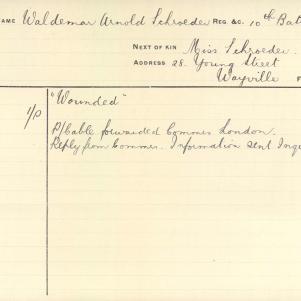 NAME Waldemar Arnold Schroeder REG &C. 10th Bat
NEXT OF KIN Miss Schroeder.
ADDRESS 28. Young Street
Wayville
"Wounded"
1/P
P/Cable forwarded Commrs London.
Reply from Commrs. Information sent